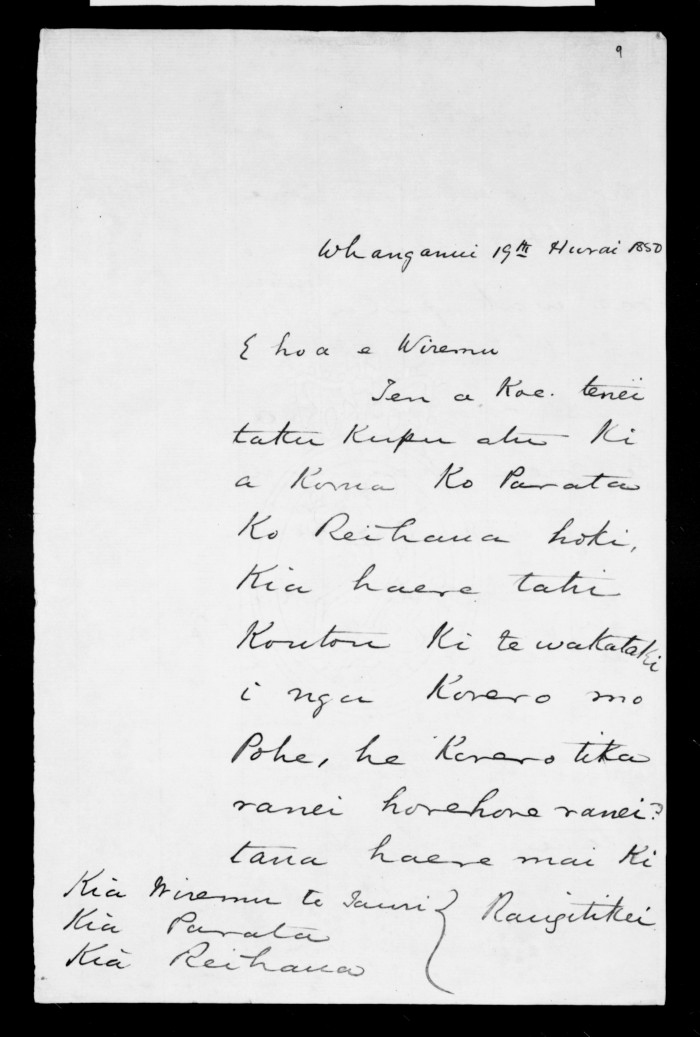 9
Whanganui 19th Hurai 1850
E hoa e Wiremu
Tena Koe. tenei
taku Kupu atu Ki
a Korua Ko Parata
Ko Reihana hoki,
Kia haere tahi
Koutou Ki te wakataki
i nga Korero mo
Pohe, he Korero tika
ranei horehore ranei?
tana haere mai Ki
Kia Wiremu te Tauri } Rangitikei
Kia Parata
Kia Reihana